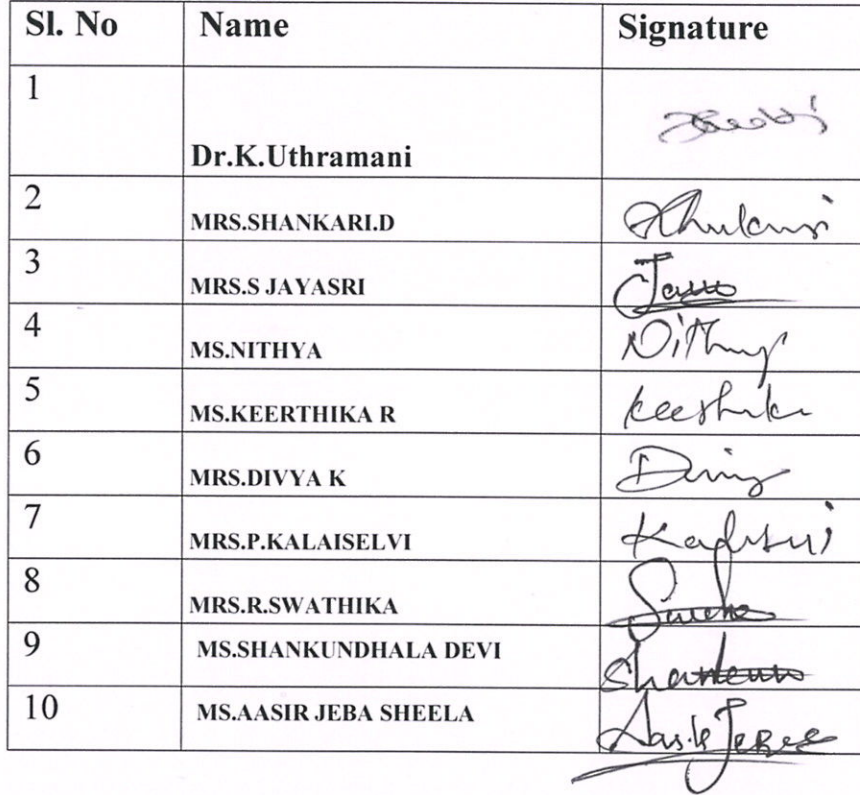 Sl. No Name Signature
1
Dr.K.Uthramani
2 MRS.SHANKARI.D
3 MRS.S JAYASRI
4 MS.NITHYA Nithya
5 MS.KEERTHIKA R
6 MRS.DIVYA K
7 MRS.P.KALAISELVI
8 MRS.R.SWATHIKA
9 MS.SHANKUNDHALA DEVI
10 MS.AASIR JEBA SHEELA